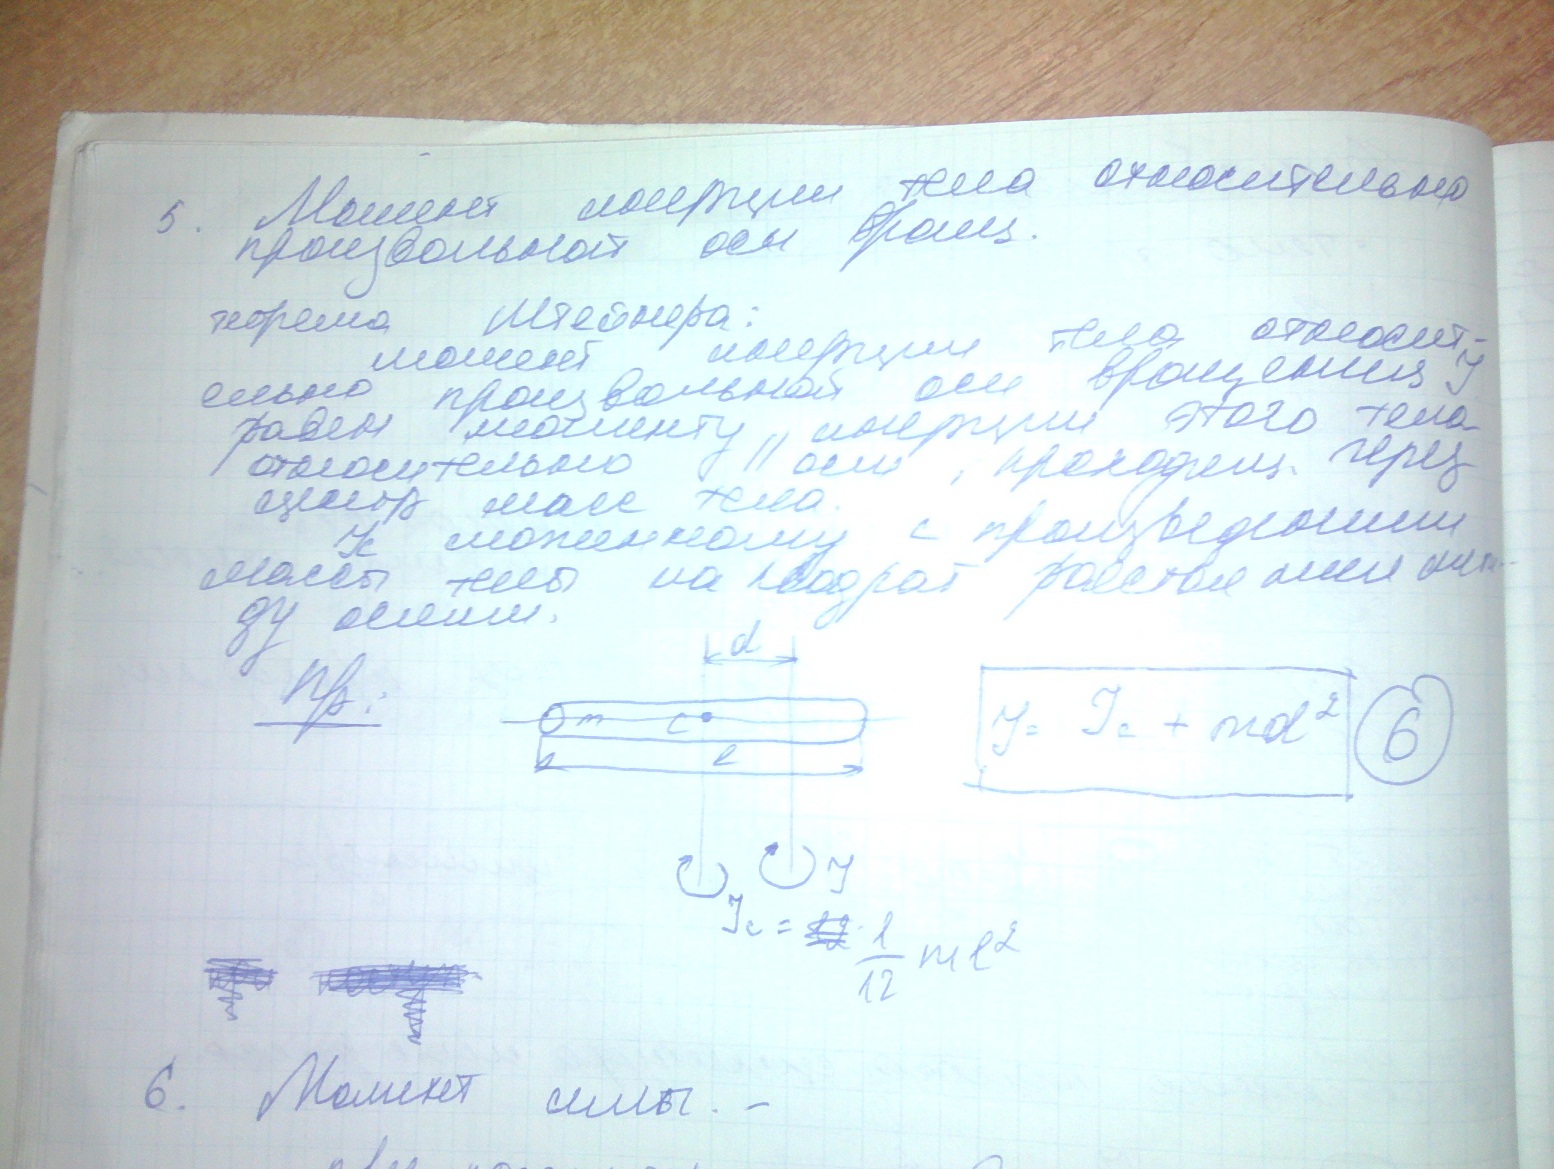 5. Момент инерции тела относительно
произвольной оси вращ.
теорема Штейнера:
момент инерции тела относит-
ельно произвольной оси вращения
равен моменту инерции этого тела
относительно || оси, проходящ. через
центр масс тела.
множенному с произведением
массы телы на квадрат расстояния меж-
ду осями.
d
Пр:
m c
l
J = Jc + md²
6
J
Jc = 1/12 ml²
6. Момент силы. -